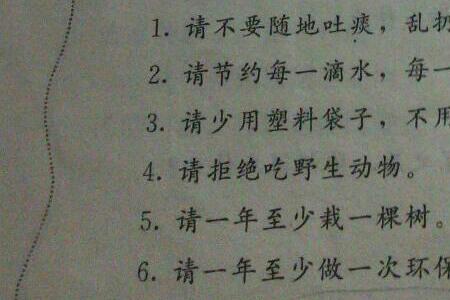 1. 请不要随地吐痰，乱扔
2. 请节约每一滴水，每一
3. 请少用塑料袋子，不用
4. 请拒绝吃野生动物。
5. 请一年至少栽一棵树。
6. 请一年至少做一次环保